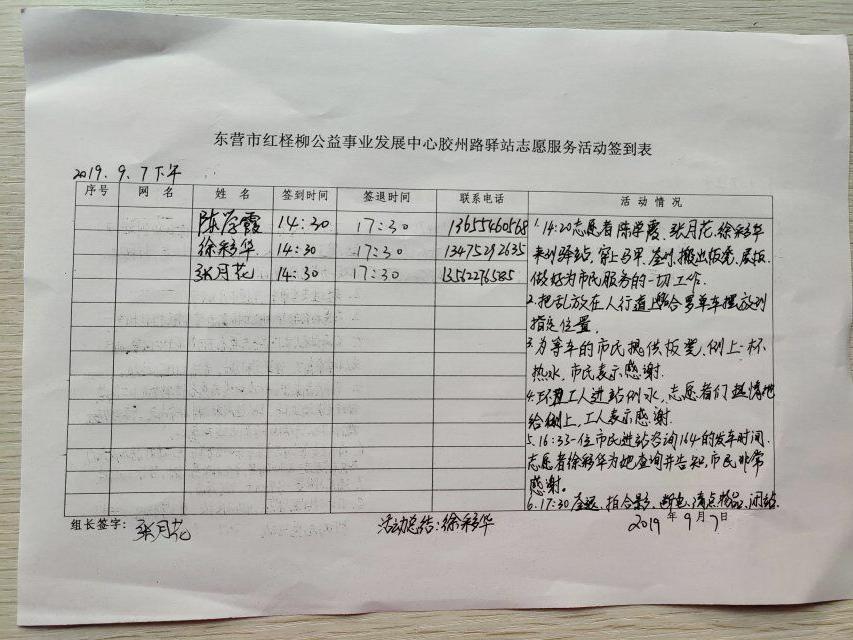 东营市红柽柳公益事业发展中心胶州路驿站志愿服务活动签到表
2019.9.7下午
序号 网名 姓名 签到时间 签退时间 联系电话 活动情况
陈学霞 14:30 17:30 13655460568
徐彩华 14:30 17:30 13475292635
张月花 14:30 17:30 13562276585
1.14:20志愿者陈学霞、张月花、徐彩华
来到驿站,穿上马甲,签到,搬出板凳、展板
做好为市民服务的一切工作.
2.把乱放在人行道上的单车摆放到
指定位置。
3.为等车的市民提供板凳,倒上一杯
热水,市民表示感谢.
4.环卫工人进站倒水,志愿者们热情地
给倒上,工人表示感谢.
5.16:33一位市民进站咨询164的发车时间.
志愿者徐彩华为她查询并告知,市民非常
感谢。
6.17:30签退、拍合影、断电、清点物品、闭站.
组长签字:张月花 活动总结:徐彩华 2019年9月7日